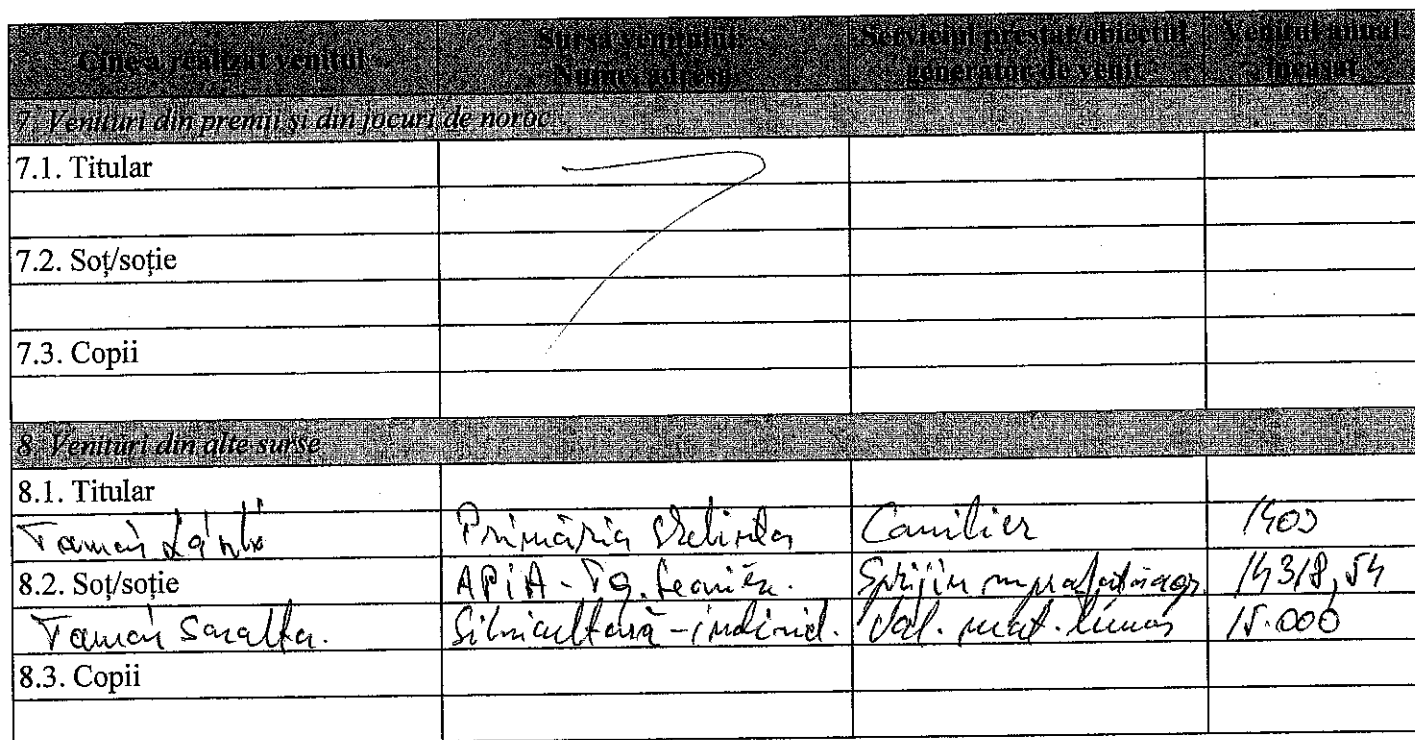 Cine a realizat venitul
Sursa venitului:
Nume, adresa
Serviciul prestat/obiectul
generator de venit
Venitul anual
încasat
7. Venituri din premii și din jocuri de noroc
7.1. Titular
7.2. Soț/soție
7.3. Copii
8. Venituri din alte surse
8.1. Titular
Primăria Consilier
8.2. Soț/soție APIA - Tg. Sprijin 14318,54
Silvicultură - individ. Val. mat. lemnos 15.000
8.3. Copii